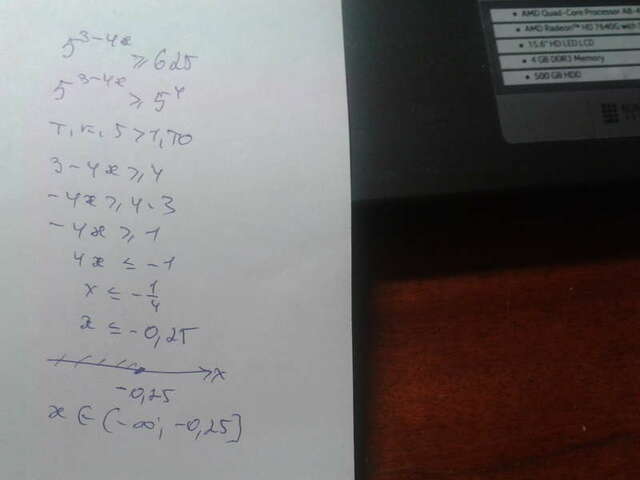 5^{3-4x} ≥ 625
5^{3-4x} ≥ 5^4
т.к. 5 > 1, то
3 - 4x ≥ 4
-4x ≥ 4-3
-4x ≥ 1
4x ≤ -1
x ≤ -1/4
x ≤ -0,25
x
-0,25
x ∈ (-∞; -0,25]
• AMD Quad-Core Processor A8-4
• AMD Radeon™ HD 7640G
• 15.6" HD LED LCD
• 4 GB DDR3 Memory
• 500 GB HDD